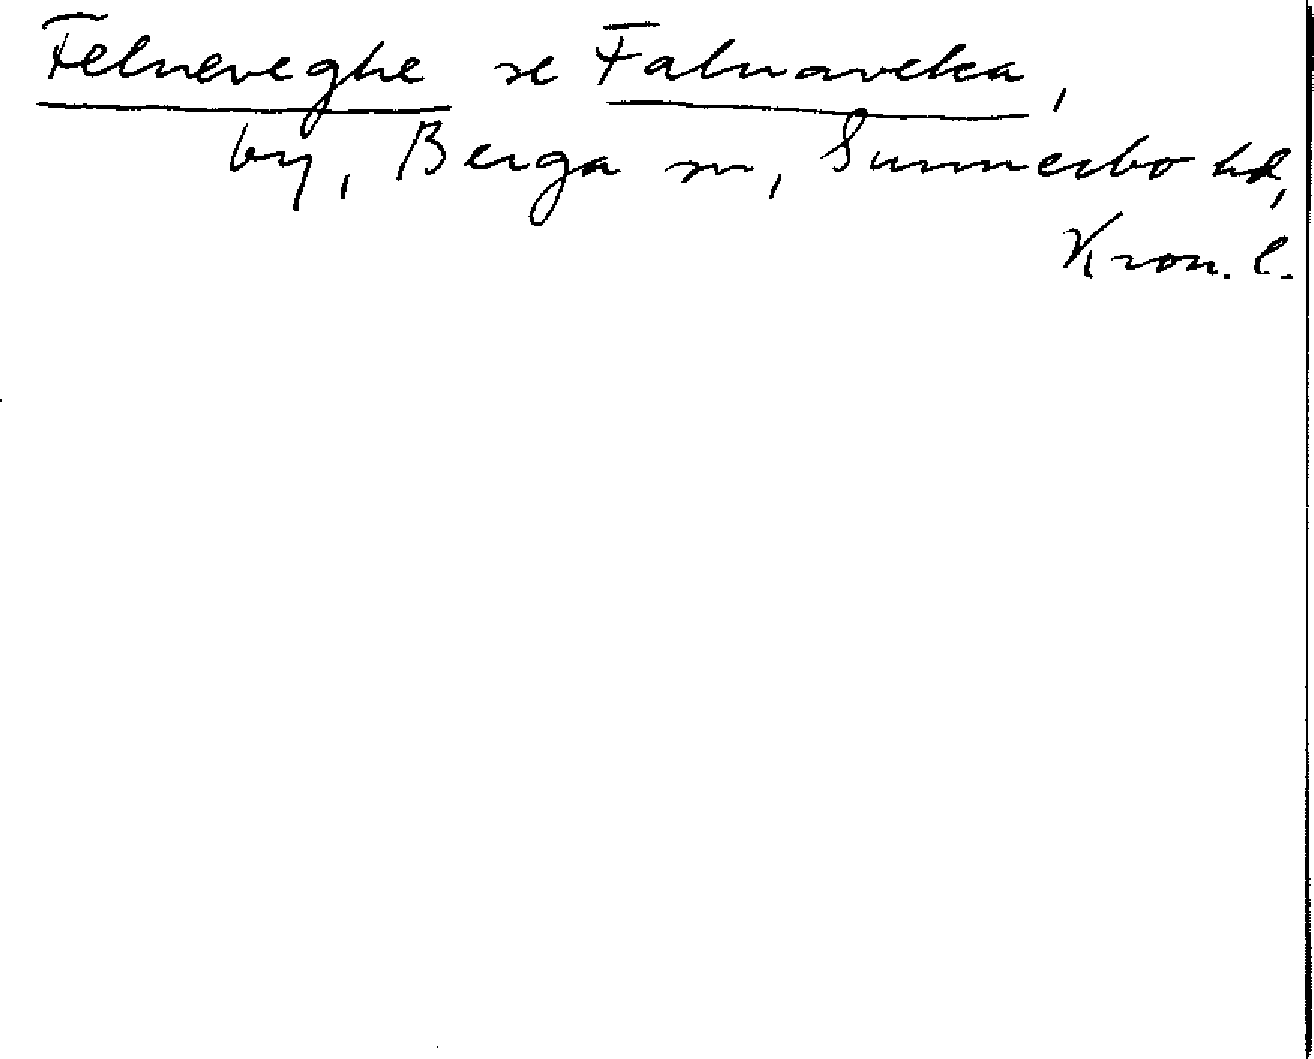 Felneveghe se Falnaveka,
by, Berga sn, Sunnerbo hd,
Kron. l.